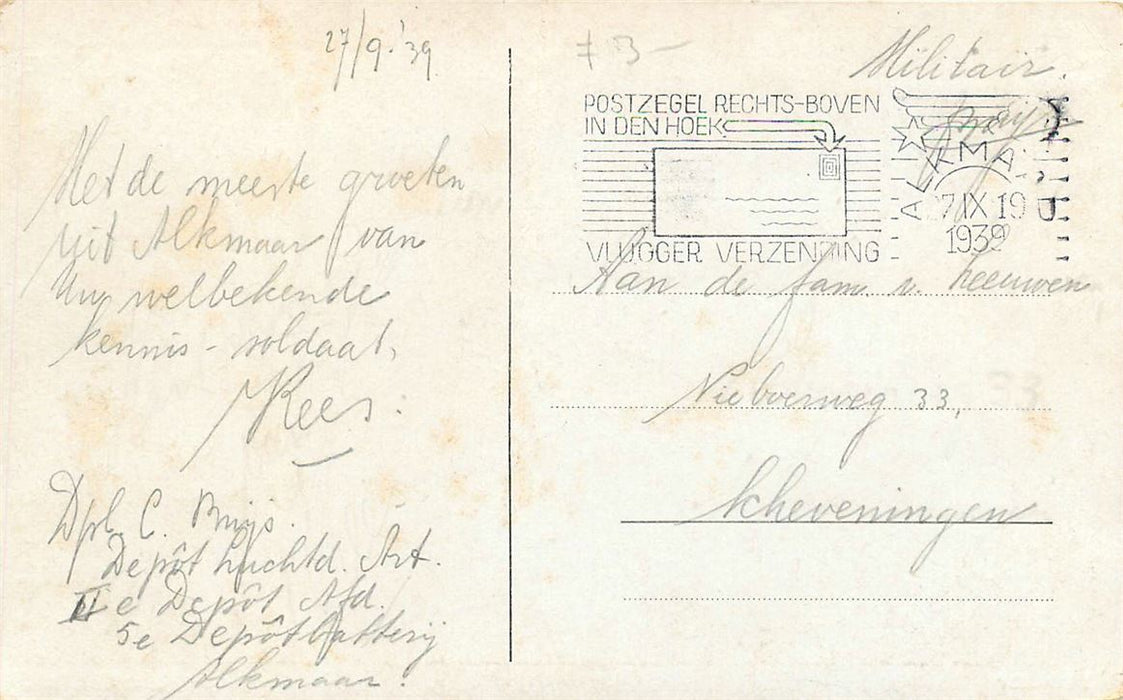 27/9.'39
Met de meeste groeten
uit Alkmaar van
Uw welbekende
kennis - soldaat,
Kees.
Dpl. C. Buijs.
Depôt Luchtd. Art.
II e Depôt Afd.
5e Depôtbatterij
Alkmaar.
Militair
POSTZEGEL RECHTS-BOVEN
IN DEN HOEK
VLUGGER VERZENDING
ALKMAAR
27 IX 19
1939
Aan de fam. v. Leeuwen
Nieboerweg 33,
Scheveningen